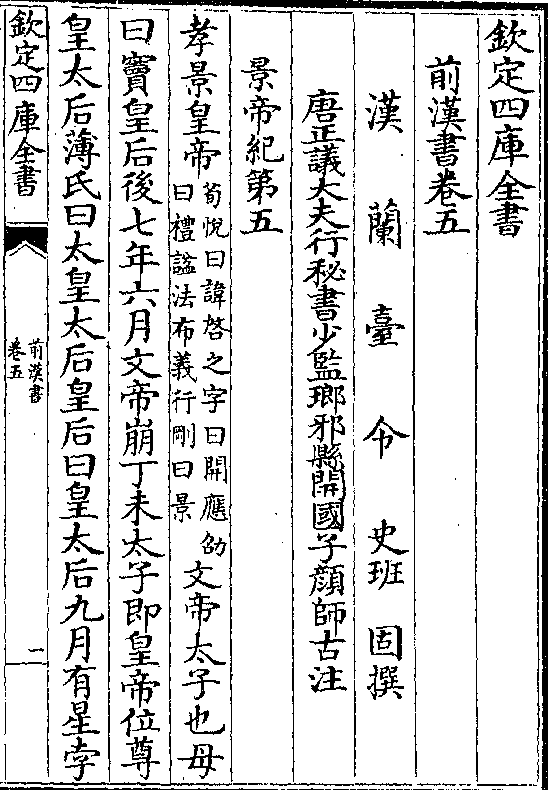 欽定四庫全書
前漢書卷五
漢蘭臺令史班固撰
唐正議大夫行秘書少監琅邪縣開國子顏師古注
景帝紀第五
孝景皇帝荀悅曰諱啓之字曰開應劭曰禮諡法布義行剛曰景文帝太子也母
曰竇皇后後七年六月文帝崩丁未太子即皇帝位尊
皇太后薄氏曰太皇太后皇后曰皇太后九月有星孛
欽定四庫全書
前漢書
卷五
一